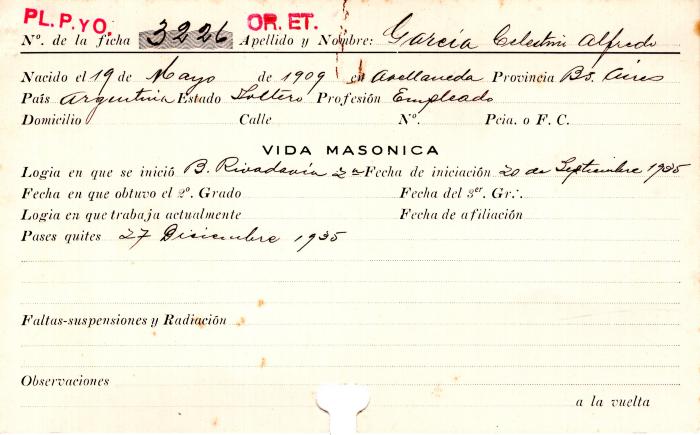 PL. P. YO. OR. ET.
Nº. de la ficha 3226 Apellido y Nombre: Garcia Celestin Alfredo
Nacido el 19 de Mayo de 1909 en Avellaneda Provincia Bs. Aires
País Argentina Estado Soltero Profesión Empleado
Domicilio Calle Nº. Pcia. o F. C.
VIDA MASONICA
Logia en que se inició B. Rivadavia 2ª Fecha de iniciación 20 de Septiembre 1935
Fecha en que obtuvo el 2º. Grado Fecha del 3er. Gr∴.
Logia en que trabaja actualmente Fecha de afiliación
Pases quites 27 Disiembre 1935
Faltas-suspensiones y Radiación
Observaciones
a la vuelta